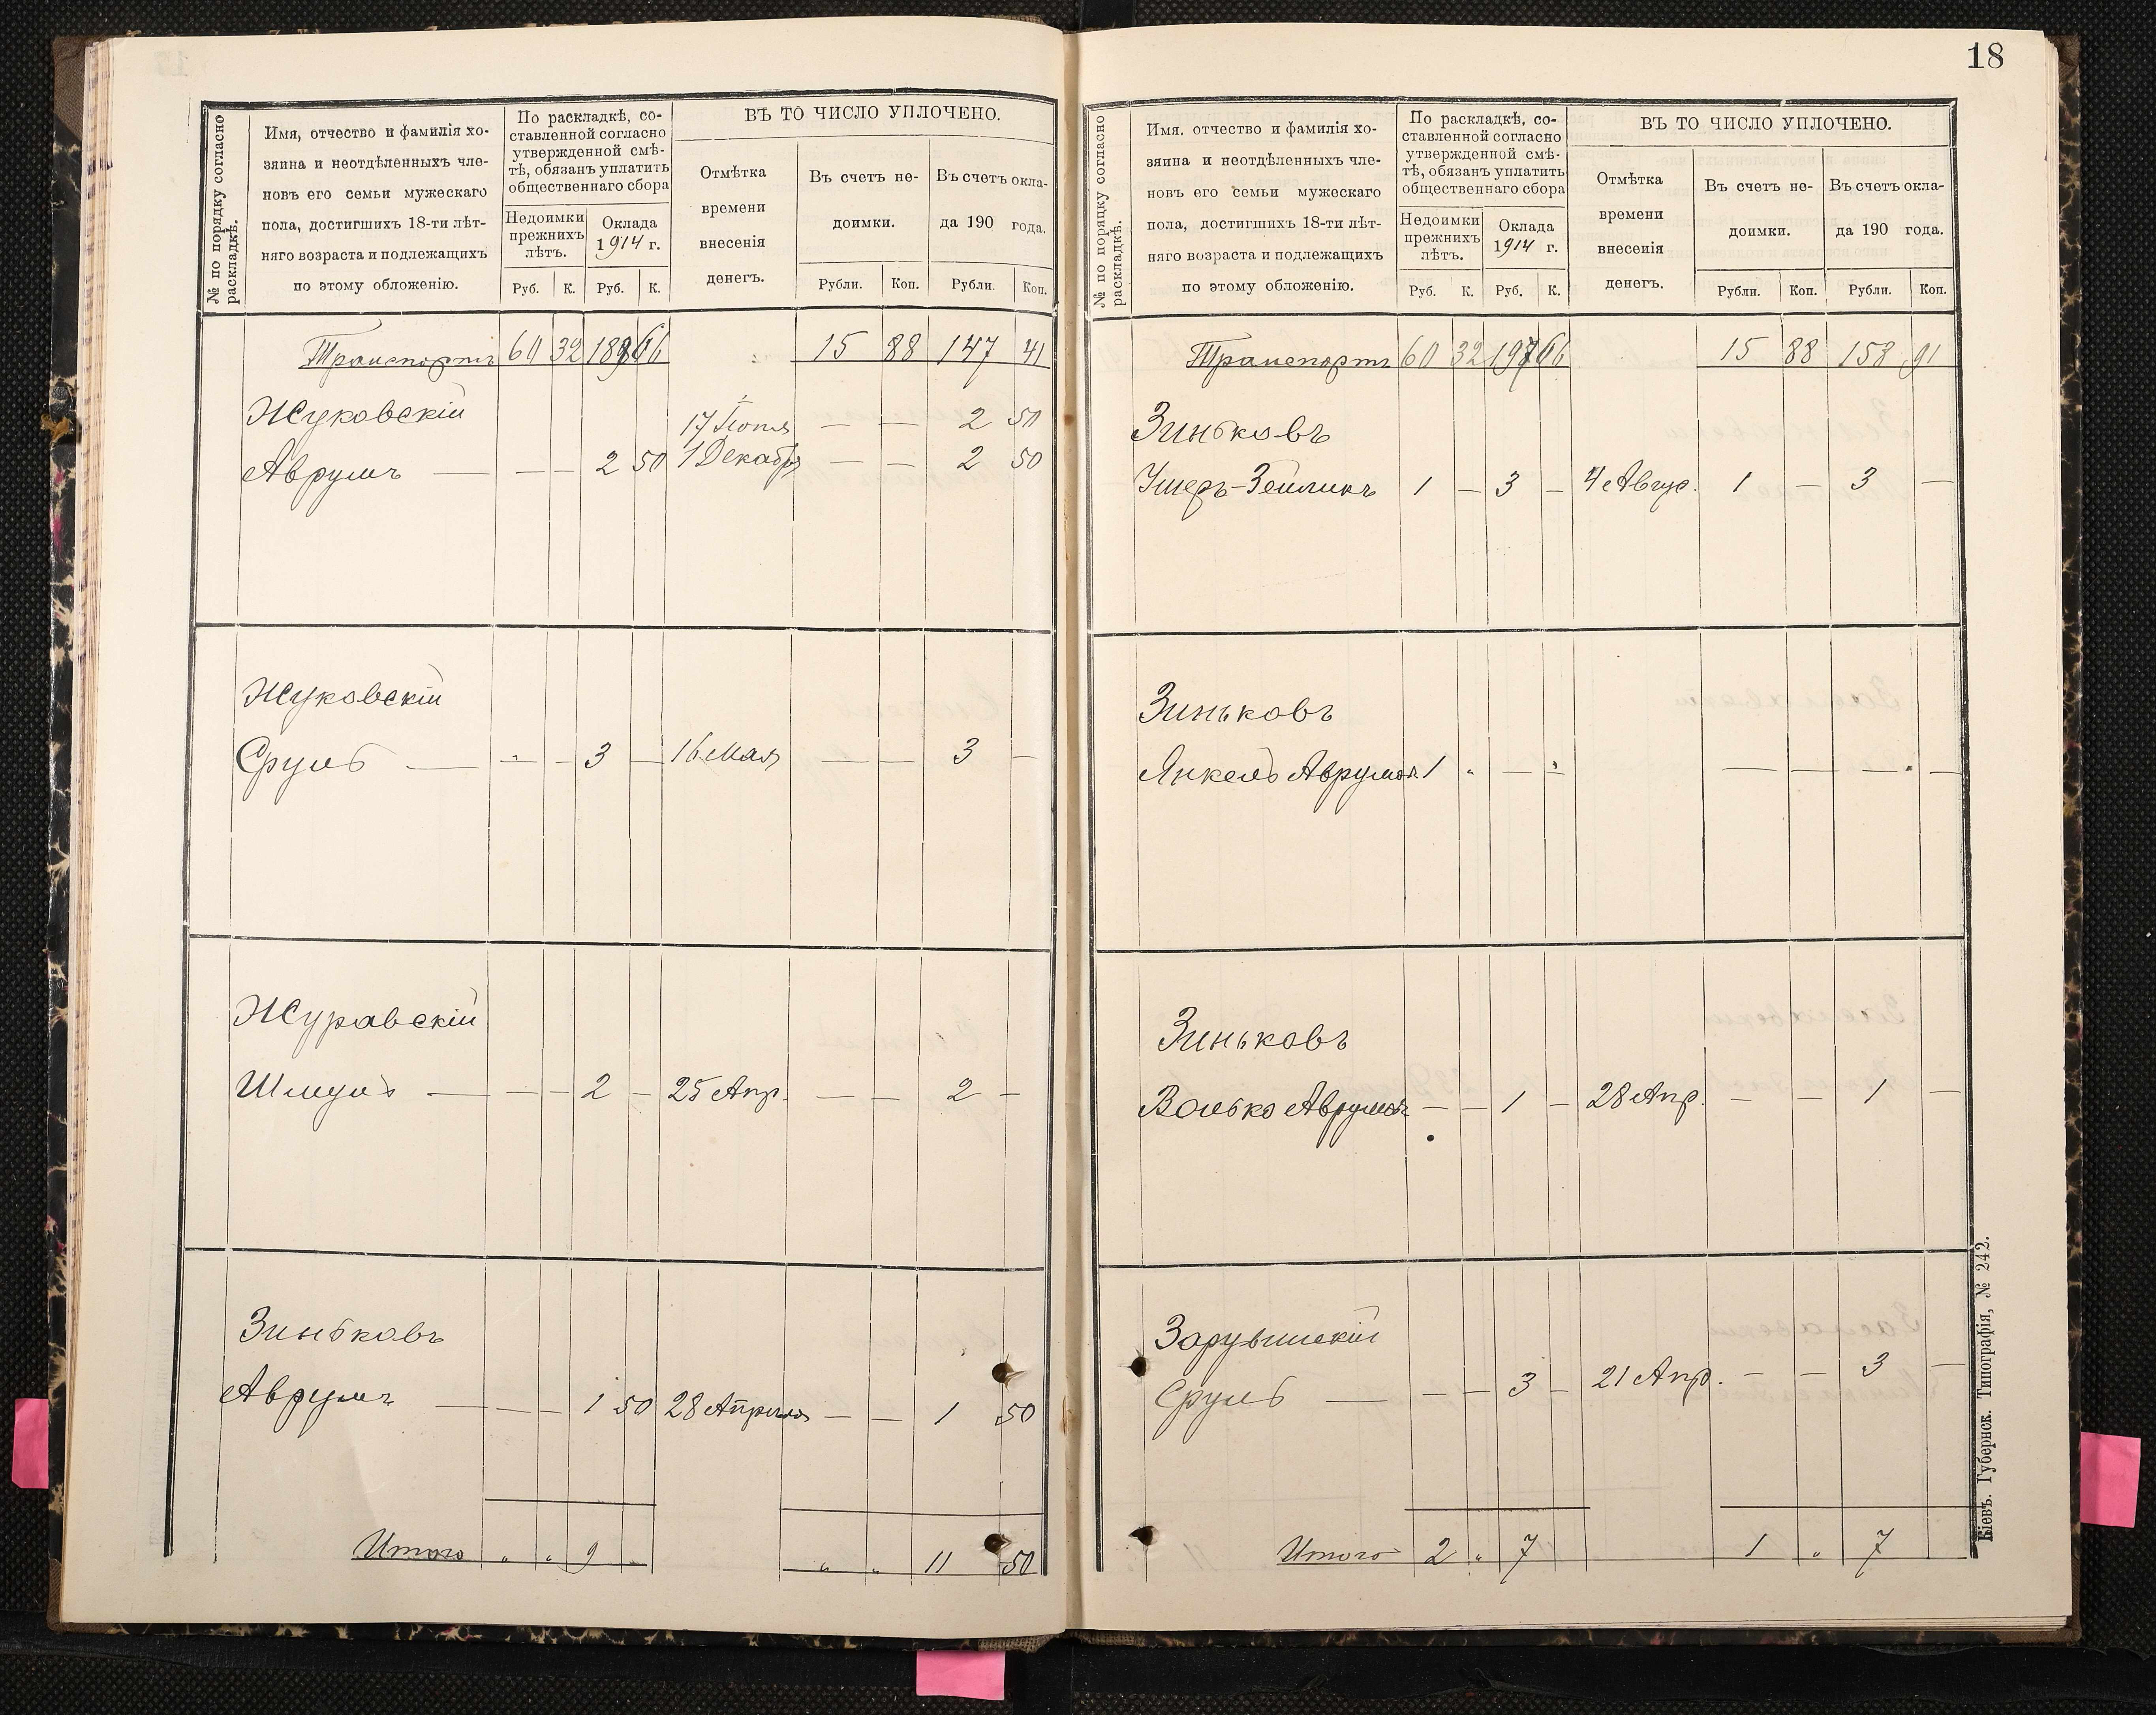 18
№ по порядку согласно раскладкѣ.
Имя, отчество и фамилія хо-
зяина и неотдѣленныхъ чле-
новъ его семьи мужескаго
пола, достигшихъ 18-ти лѣт-
няго возраста и подлежащихъ
по этому обложенію.
По раскладкѣ, со-
ставленной согласно
утвержденной смѣ-
тѣ, обязанъ уплатить
общественнаго сбора
Недоимки прежнихъ лѣтъ.
Оклада 1914 г.
Руб. К. Руб. К.
ВЪ ТО ЧИСЛО УПЛОЧЕНО.
Отмѣтка
времени
внесенія
денегъ.
Въ счетъ не-
доимки.
Въ счетъ окла-
да 190 года.
Рубли. Коп. Рубли. Коп.
Транспортъ 60 32 66 15 88 147 41
Жуковскій 2 50
Аврумъ — — — 2 50 1 Декабря — — 2 50
Жуковскій
Сруль — - — 3 — 16 Мая — — 3 —
Журавскій
Шмуль — — — 2 — 25 Апр. — — 2 —
Зиньковъ
Аврумъ — — — 1 50 28 Апрѣля — — 1 50
Итого „ „ 9 „ „ „ 11 50
№ по порядку согласно раскладкѣ.
Имя, отчество и фамилія хо-
зяина и неотдѣленныхъ чле-
новъ его семьи мужескаго
пола, достигшихъ 18-ти лѣт-
няго возраста и подлежащихъ
по этому обложенію.
По раскладкѣ, со-
ставленной согласно
утвержденной смѣ-
тѣ, обязанъ уплатить
общественнаго сбора
Недоимки прежнихъ лѣтъ.
Оклада 1914 г.
Руб. К. Руб. К.
ВЪ ТО ЧИСЛО УПЛОЧЕНО.
Отмѣтка
времени
внесенія
денегъ.
Въ счетъ не-
доимки.
Въ счетъ окла-
да 190 года.
Рубли. Коп. Рубли. Коп.
Транспортъ 60 32 66 15 88 158 91
Зиньковъ
Ушеръ-Зейликъ 1 — 3 — 4 Авгус. 1 — 3 —
Зиньковъ
Янкель Аврумов. 1 „ — „ — — — —
Зиньковъ
Волько Аврумов. — — 1 — 28 Апр. — — 1 —
Сруль — — — 3 — 21 Апр. — — 3 —
Итого 2 „ 7 1 „ 7
Кіевъ. Губернск. Типографія, № 242.